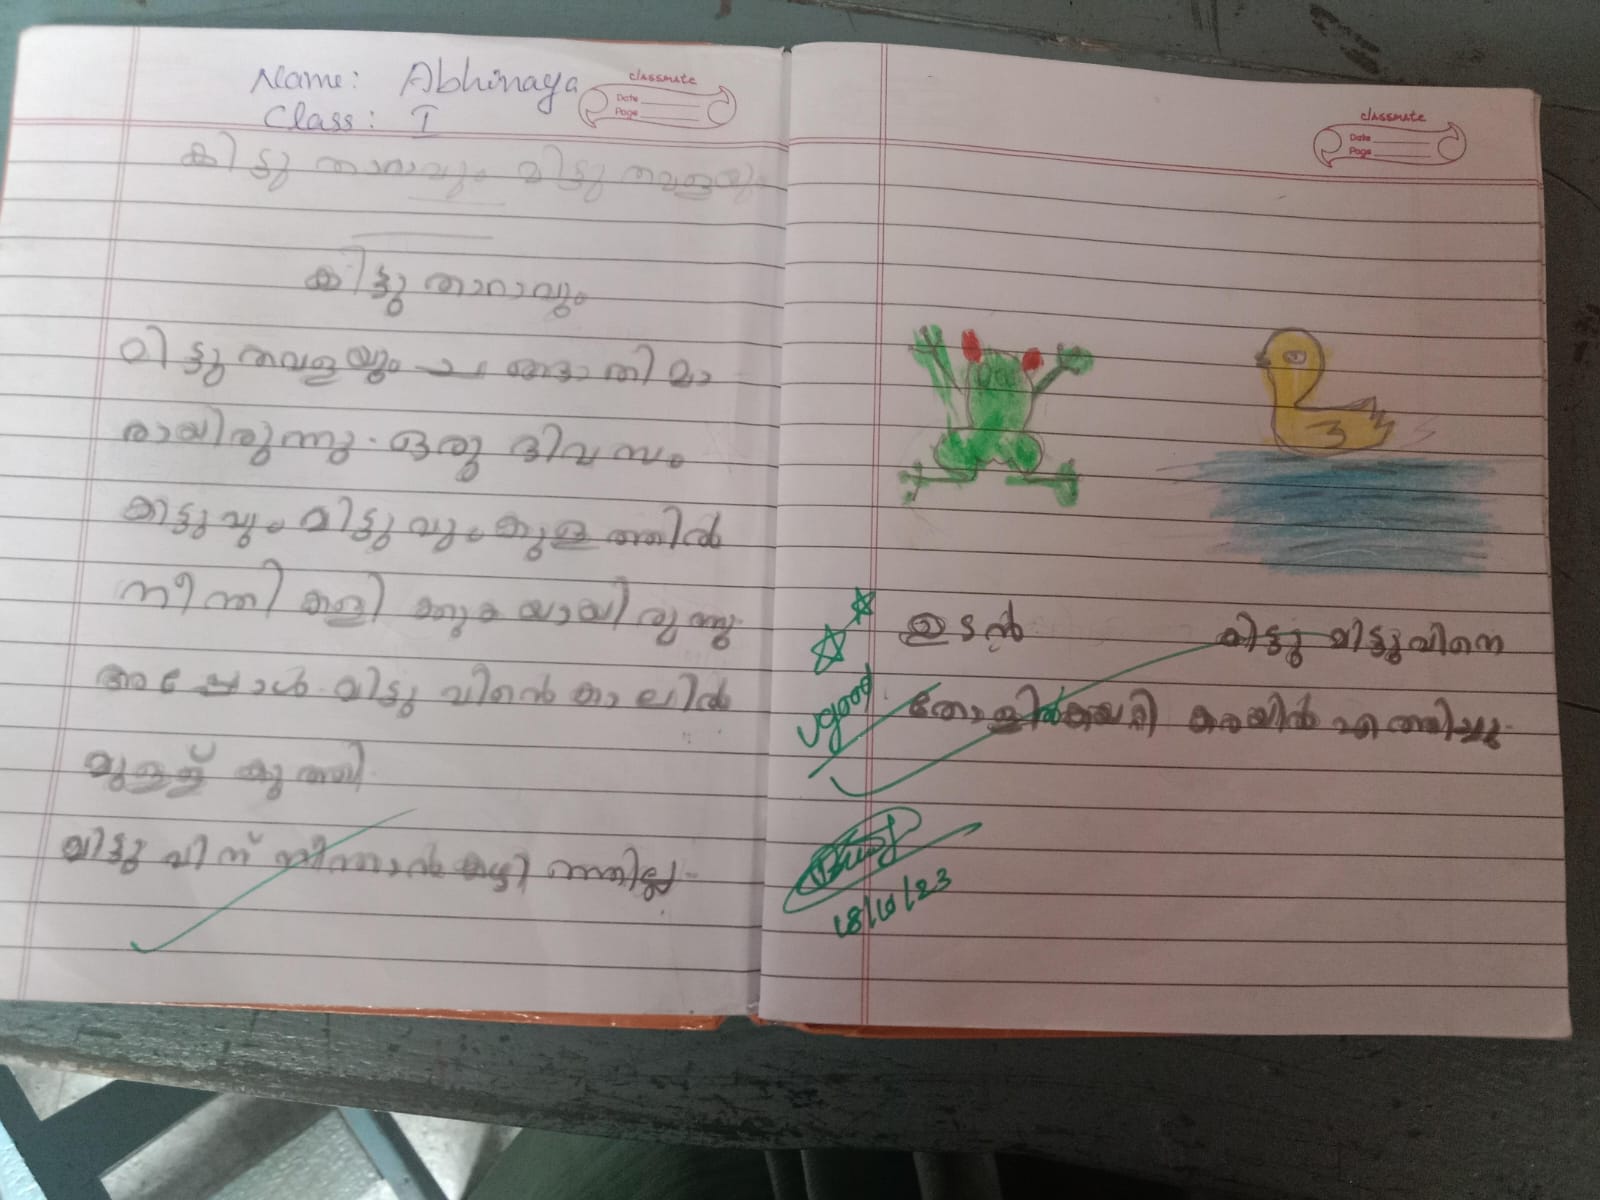 Name: Abhinaya
classmate
Date
Page
Class: I
കിട്ടു താറാവും മിട്ടു തവളയും
കിട്ടു താറാവും
മിട്ടു തവളയും ചങ്ങാതിമാ
രായിരുന്നു. ഒരു ദിവസം
കിട്ടുവും മിട്ടുവും കുളത്തിൽ
നീന്തി കളിക്കുകയായിരുന്നു
അപ്പോൾ മിട്ടുവിൻെ കാലിൽ
മുള്ള് കുത്തി.
മിട്ടുവിന് നീന്താൻ കഴിഞ്ഞില്ല.
classmate
Date
Page
ഉടൻ കിട്ടു മിട്ടുവിനെ
തോളിൽകയറ്റി കരയിൽ എത്തിച്ചു.
v good